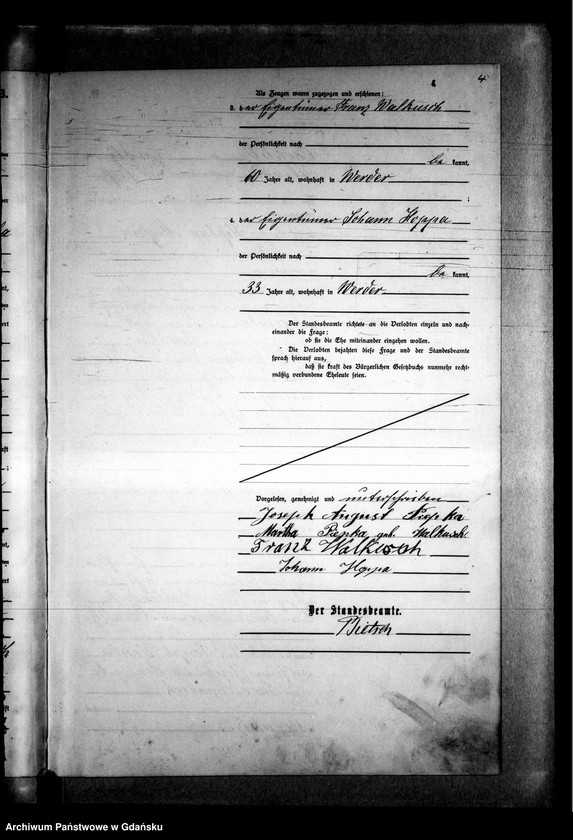 4
Als Zeugen waren zugezogen und erschienen:
3. der Eigentümer Franz Walkusch
der Persönlichkeit nach
be kannt,
60 Jahre alt, wohnhaft in Werder
;
4. der Eigentümer Johann Hoppa
der Persönlichkeit nach
be kannt,
33 Jahre alt, wohnhaft in Werder
Der Standesbeamte richtete an die Verlobten einzeln und nach-
einander die Frage:
ob sie die Ehe miteinander eingehen wollen.
Die Verlobten bejahten diese Frage und der Standesbeamte
sprach hierauf aus,
daß sie kraft des Bürgerlichen Gesetzbuchs nunmehr recht-
mäßig verbundene Eheleute seien.
Vorgelesen, genehmigt und unterschrieben
Joseph August Piepka
Martha Piepka geb. Walkusch
Franz Walkusch
Johann Hoppa
Der Standesbeamte.
Bietsch
Archiwum Państwowe w Gdańsku